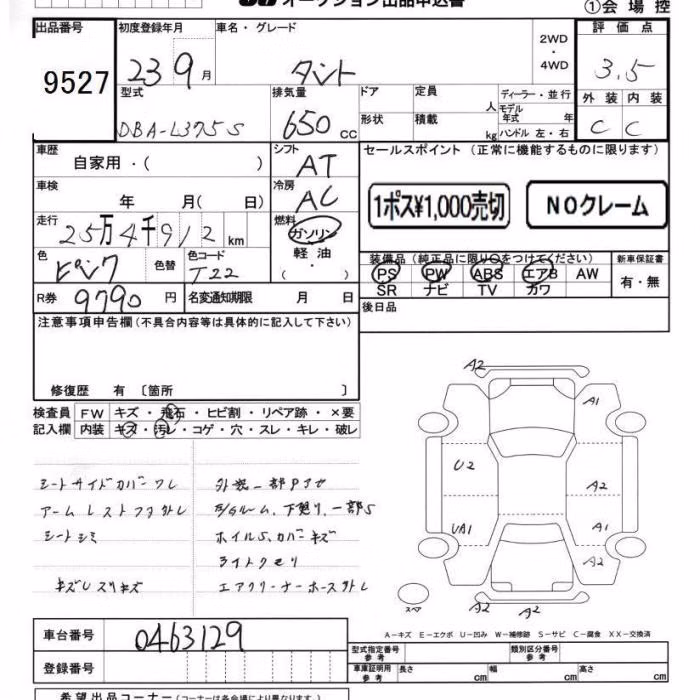 オークション出品申込書
①会場控
出品番号 初度登録年月 車名・グレード 評価点
9527 23 9月 タント 2WD・4WD 3.5
型式 排気量 ドア 定員 人 ディーラー・並行 外装 内装
DBA-L375S 650 CC 形状 積載 kg モデル年式 年 ハンドル 左・右 C C
車歴 シフト セールスポイント (正常に機能するものに限ります)
自家用・( ) AT
車検 冷房 1ポス¥1,000売切 NOクレーム
年 月( 日) AC
走行 燃料
25万4千912km ガソリン
軽油
( ・ )
色 色替 色コード 装備品 (純正品に限り○をつけてください) 新車保証書
ピンク T22 PS PW ABS エアB AW 有・無
SR ナビ TV カワ
R券 9790円 名変通知期限 月 日 後日品
注意事項申告欄(不具合内容等は具体的に記入して下さい)
修復歴 有 〔箇所 〕
検査員 FW キズ・飛石・ヒビ割・リペア跡・×要
記入欄 内装 キズ・汚レ・コゲ・穴・スレ・キレ・破レ
シートサイドカバーワレ
アームレストフタ外レ
シートシミ
キズUスリキズ
外装一部Pナセ
下廻リ、一部S
ホイルS、カバーキズ
ライトクモリ
エアクリーナーホース外レ
A2
A1
U2
A2
UA1
A1
A2
スペア
A2
A2
A−キズ E−エクボ U−凹み W−補修跡 S−サビ C−腐食 XX−交換済
車台番号 0463129
型式指定番号 参考 類別区分番号 参考
登録番号 車庫証明用 参考 長さ cm 幅 cm 高さ cm
希望出品コーナー(コーナーは各会場により異なります。)